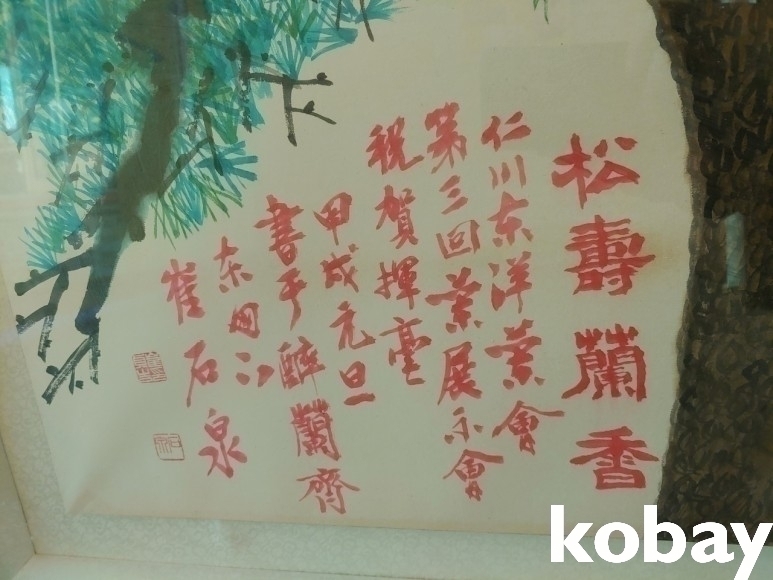 松壽蘭香
仁川东洋蘭會
第三回蘭展示會
祝賀揮毫
甲戌元旦
書于醉蘭齊
东
崔石泉
kobay